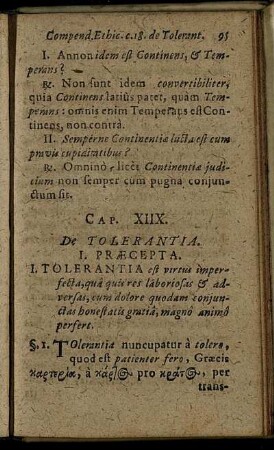 Compend. Ethic. c. 18. de Tolerant. 95
I. Annon idem est Continens, & Tem-
perans?
℞. Non sunt idem convertibiliter,
quia Continens latiùs patet, quàm Tem-
perans: omnis enim Temperans est Con-
tinens, non contrà.
II. Sempérne Continentiæ lucta est cum
pravis cupiditatibus?
℞. Omninò, licèt Continentiæ judi-
cium non semper cum pugna conjun-
ctum sit.
CAP. XIIX.
De TOLERANTIA.
I. PRÆCEPTA.
I. TOLERANTIA est virtus imper-
fecta, quâ quis res laboriosas & ad-
versas, cum dolore quodam conjun-
ctas honestatis gratiâ, magnô animô
perfert.
§. 1. Tolerantia nuncupatur à tolero,
quod est patienter fero, Græcis
καρτερία, à κάρτος pro κράτος, per
trans-